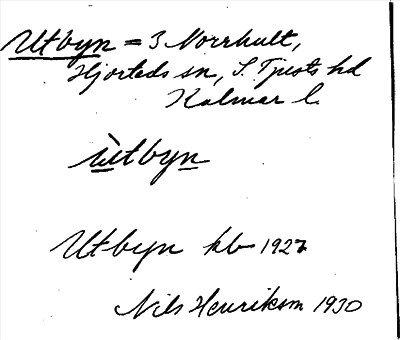 Utbyn = 3 Norrhult,
Hjorteds sn, S. Tjusts hd
Kalmar l.
ùtbyn
Utbyn kb 1927
Nils Henrikson 1930